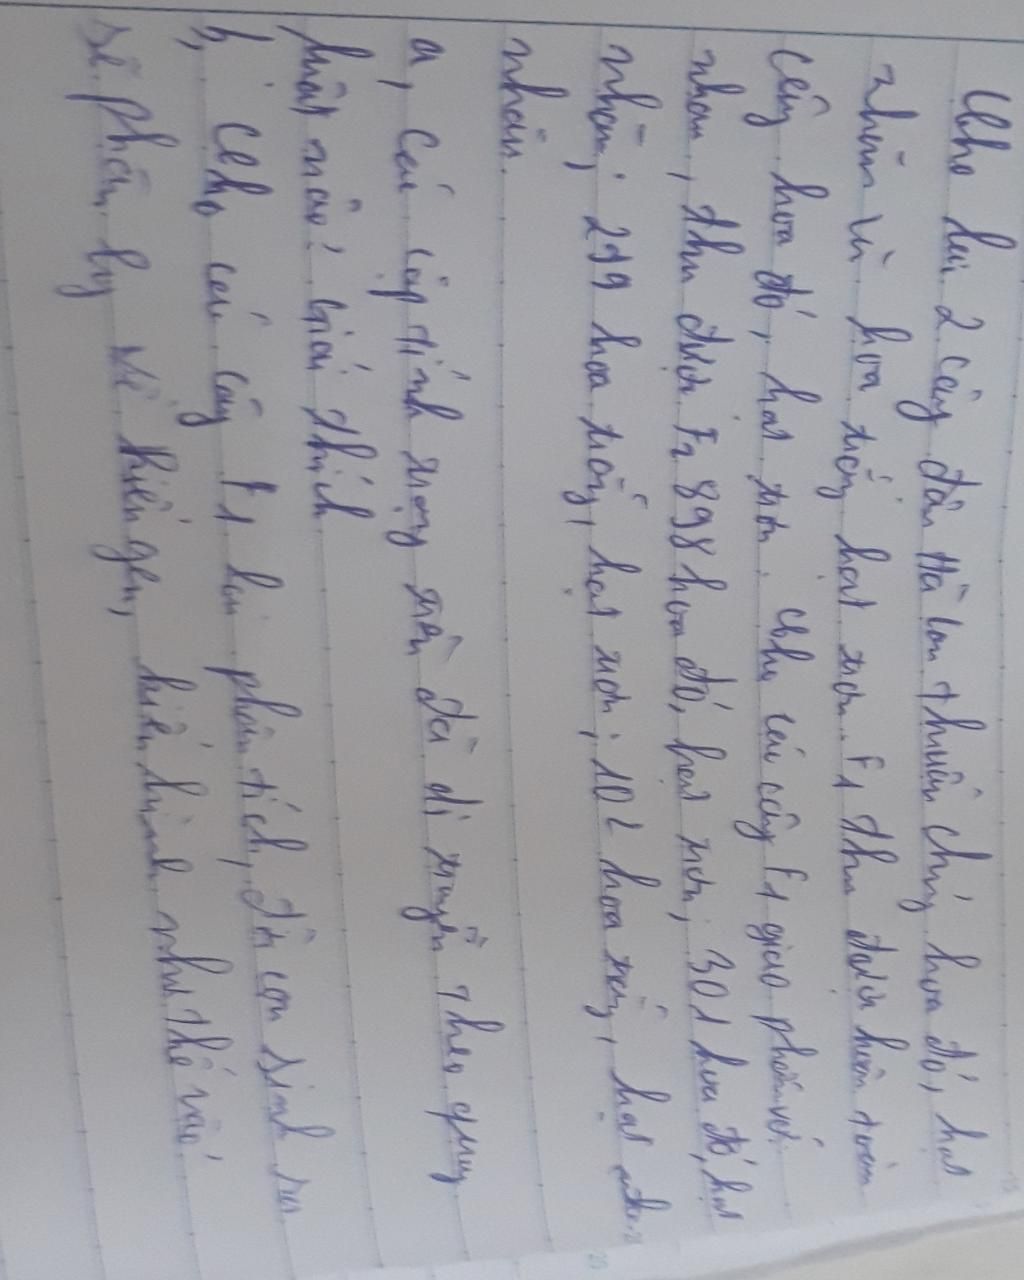 Cho lai 2 cây đậu Hà Lan thuần chủng hoa đỏ, hạt
nhăn và hoa trắng hạt trơn. F1 thu được hoàn toàn
cây hoa đỏ, hạt trơn. Cho các cây F1 giao phấn với
nhau, thu được F2 898 hoa đỏ, hạt trơn; 301 hoa đỏ, hạt
nhăn; 299 hoa trắng, hạt trơn; 102 hoa trắng, hạt
nhăn.
a, Các cặp tính trạng trên đã di truyền theo quy
luật nào? Giải thích
b, Cho các cây F1 lai phân tích, đời con sinh ra
sẽ phân ly về kiểu gen, kiểu hình như thế nào
20